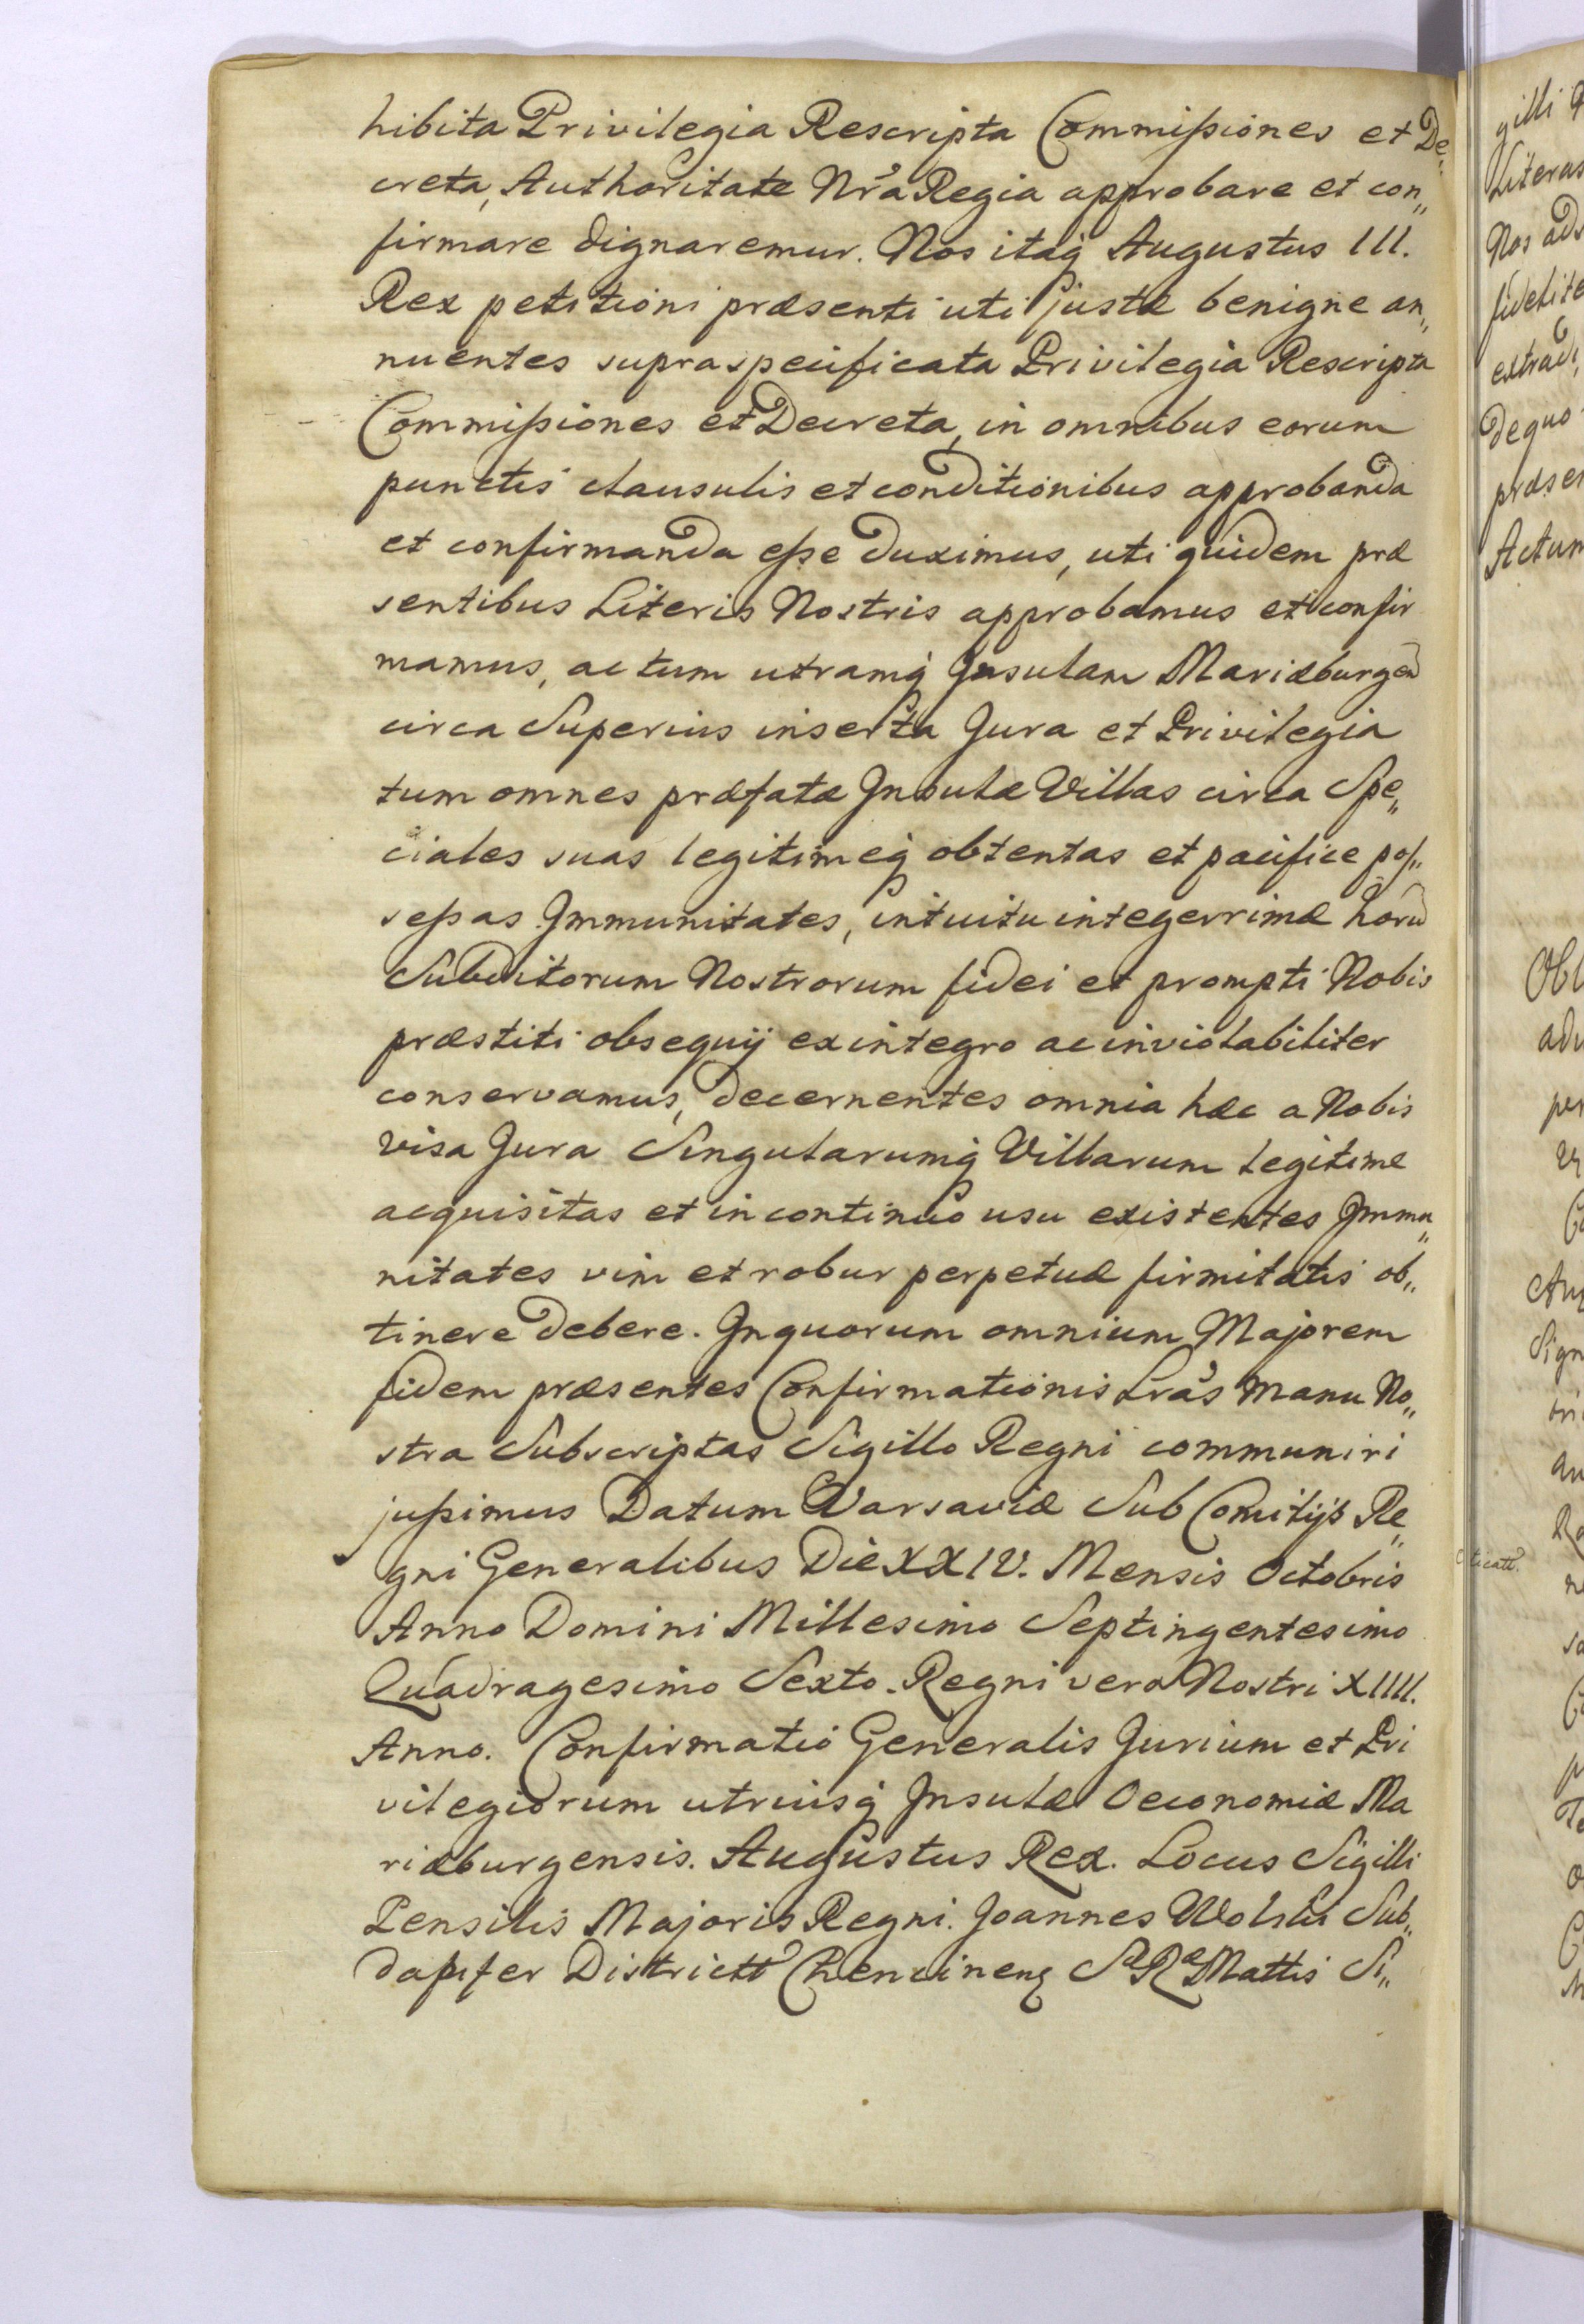 hibita Privilegia Rescripta Commißiones et De„
creta, Authoritate Nr̃a Regia approbare et con„
firmare dignaremur. Nos itaq́ Augustus III.
Rex petitioni præsenti uti justæ benigne an„
nuentes supraspecificata Privilegia Rescripta
Commißiones et Decreta, in omnibus eorum
punctis clausulis et conditionibus approbanda
et confirmanda eße duximus, uti quidem præ
sentibus Literis Nostris approbamus et confir
mamus, ac tum utramq́ Insulam Mariæburgen̄
circa Superius inserta Jura et Privilegia
tum omnes præfatæ Insulæ Villas circa Spe„
ciales suas legitimeq́ obtentas et pacifice pos„
seßas Immunitates, intuitu integerrimæ horū
Subditorum Nostrorum fidei et prompti Nobis
præstiti obsequij ex integro ac inviolabiliter
conservamus, decernentes omnia hæc a Nobis
visa Jura Singularumq́ Villarum legitime
acquisitas et in continuo usu existentes Immu„
nitates vim et robur perpetuæ firmitatis ob„
tinere debere. In quorum omnium Majorem
fidem præsentes Confirmationis Lr̃as manu No„
stra Subscriptas Sigillo Regni communiri
jußimus Datum Varsaviæ Sub Comitijs Re„
gni Generalibus Die XXIV. Mensis Octobris
Anno Domini Millesimo Septingentesimo
Quadragesimo Sexto. Regni vero Nostri XIIII.
Anno. Confirmatio Generalis Jurium et Pri
vilegiorum utriusq́ Insulæ Oeconomiæ Ma
riæburgensis. Augustus Rex. Locus Sigilli
Pensilis Majoris Regni. Joannes Wolski Sub„
dapifer Districtt Chencinenſ SæRæMattis Si„
gilli
Literas
Nos
extradi
de quo
Actum